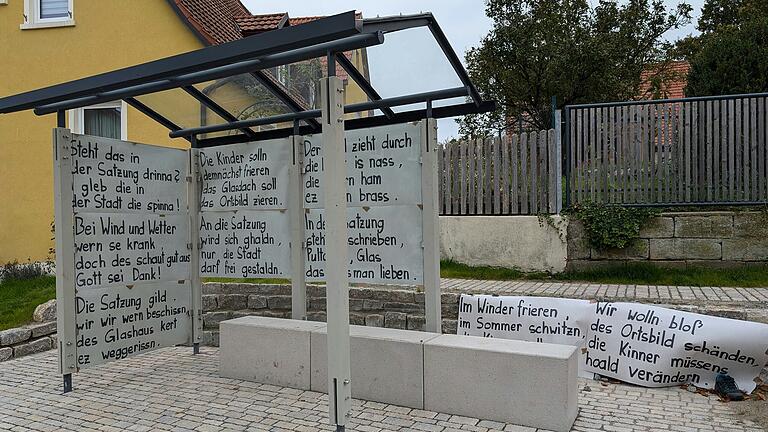 Steht das in
der Satzung drinna?
I gleb die in
der Stadt die spinna!
Bei Wind und Wetter
wern se krank
doch des schaut gut aus
Gott sei Dank!
Die Satzung gild,
wir wern beschissn,
des Glashaus kert
ez weggerissn.
Die Kinder solln
demnächst frieren
das Glasdach soll
das Ortsbild zieren.
An die Satzung
wird sich ghaldn,
nur die Stadt
darf frei gestaldn.
Der zieht
die is nass,
die ham
ez brass.
In der Satzung
steht schrieben,
Glas
das man lieben.
Im Winder frieren,
im Sommer schwitzn,
Wir wolln bloß
des Ortsbild schänden,
die Kinner müssens
hoald verändern